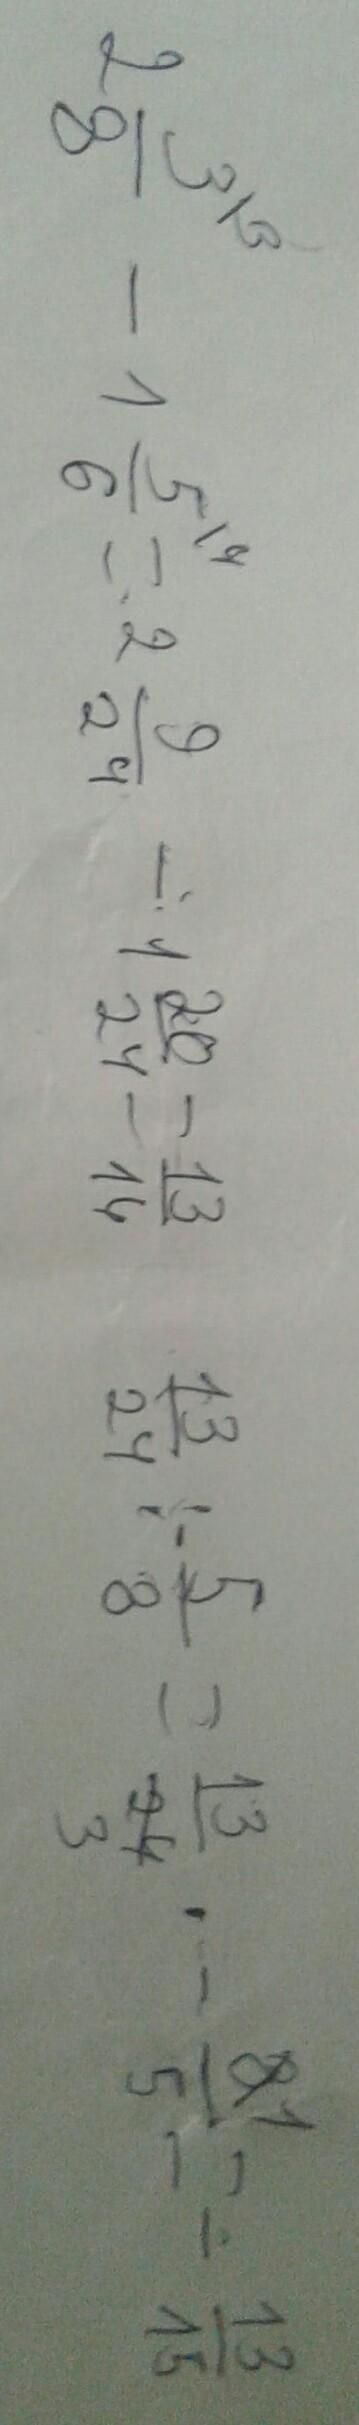 2 3/8 \3 − 1 5/6 \4 = 2 9/24 − 1 20/24 = 13/14   13/24 : − 5/8 = 13/24 3 · − 8 1/5 = − 13/15